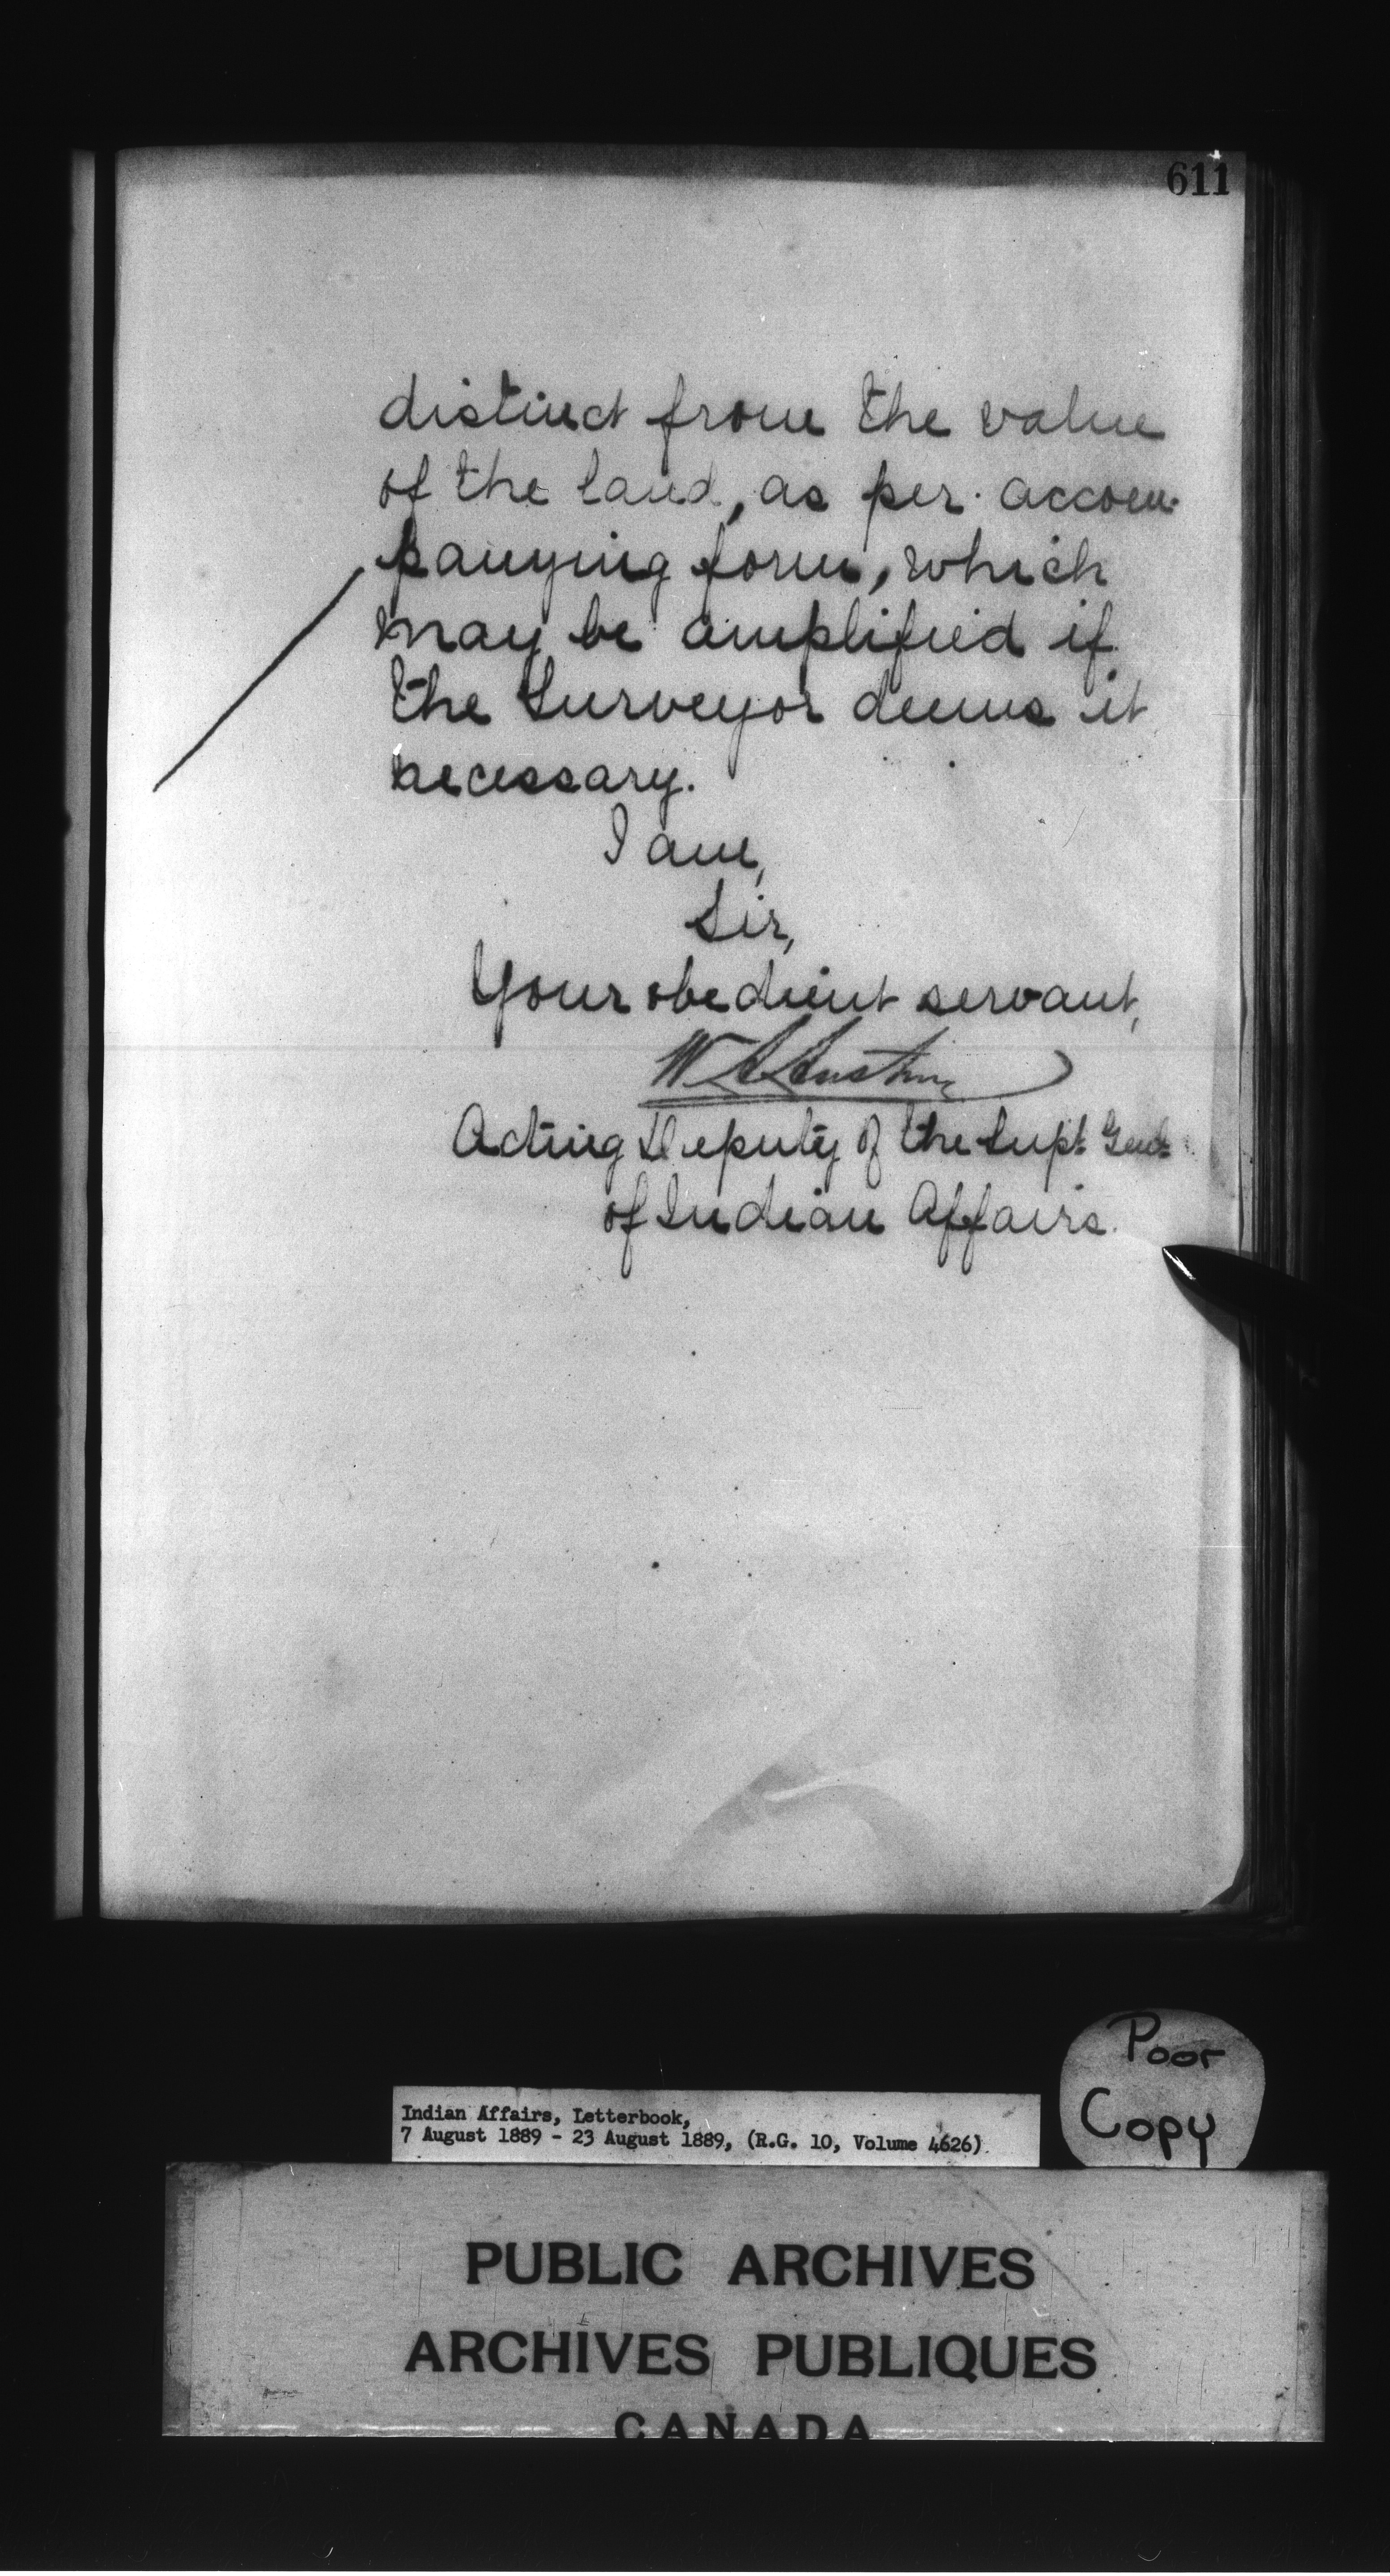 611
distinct from the value
of the land, as per accom-
panying form, which
may be amplified if
the Surveyor deems it
necessary.
I am,
Sir,
Your obedient servant,
W A Austin
Acting Deputy of the Supt Genl
of Indian Affairs.
Poor
Copy
Indian Affairs, Letterbook,
7 August 1889 - 23 August 1889, (R.G. 10, Volume 4626)
PUBLIC ARCHIVES
ARCHIVES PUBLIQUES
CANADA